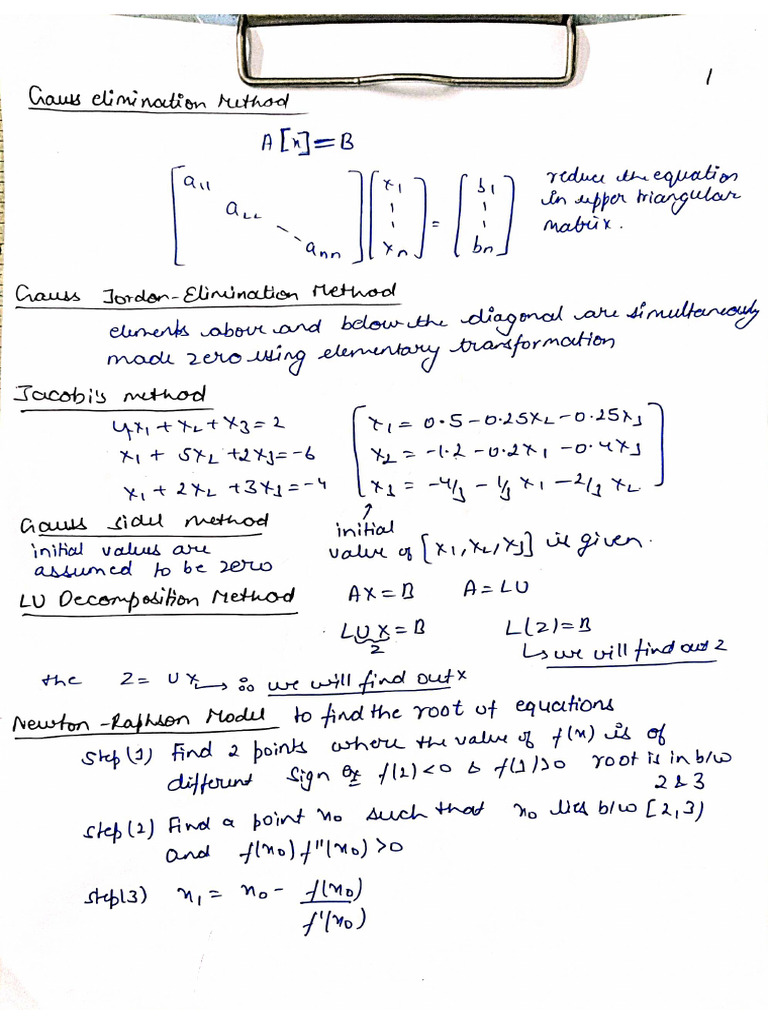 1
Gauss elimination Method
A[x]=B
[a11 a22 ann] [x1 ¦ xn] = [b1 ¦ bn] reduce the equation
in upper triangular
matrix.
Gauss Jordon-Elimination Method
elements above and below the diagonal are simultaneously
made zero using elementary transformation
Jacobi's method
4x1 + x2 + x3 = 2 [x1 = 0.5 - 0.25x2 - 0.25x3]
x1 + 5x2 + 2x3 = -6 [x2 = -1.2 - 0.2x1 - 0.4x3]
x1 + 2x2 + 3x3 = -4 [x3 = -4/3 - 1/3 x1 - 2/3 x2]
Gauss sidel method ↑ initial
initial values are value of [x1, x2, x3] is given.
assumed to be zero
LU Decomposition Method AX=B A=LU
LUX=B L(Z)=B
Z ↳ we will find out Z
the Z = UX → ∴ we will find out x
Newton-Raphson Model to find the root of equations
step (1) Find 2 points where the value of f(x) is of
different sign Ex f(2)<0 & f(3)>0 root is in b/w
2 & 3
step (2) Find a point x0 such that x0 lies b/w [2,3)
and f(x0) f''(x0) >0
step(3) x1 = x0 - f(x0)
f'(x0)